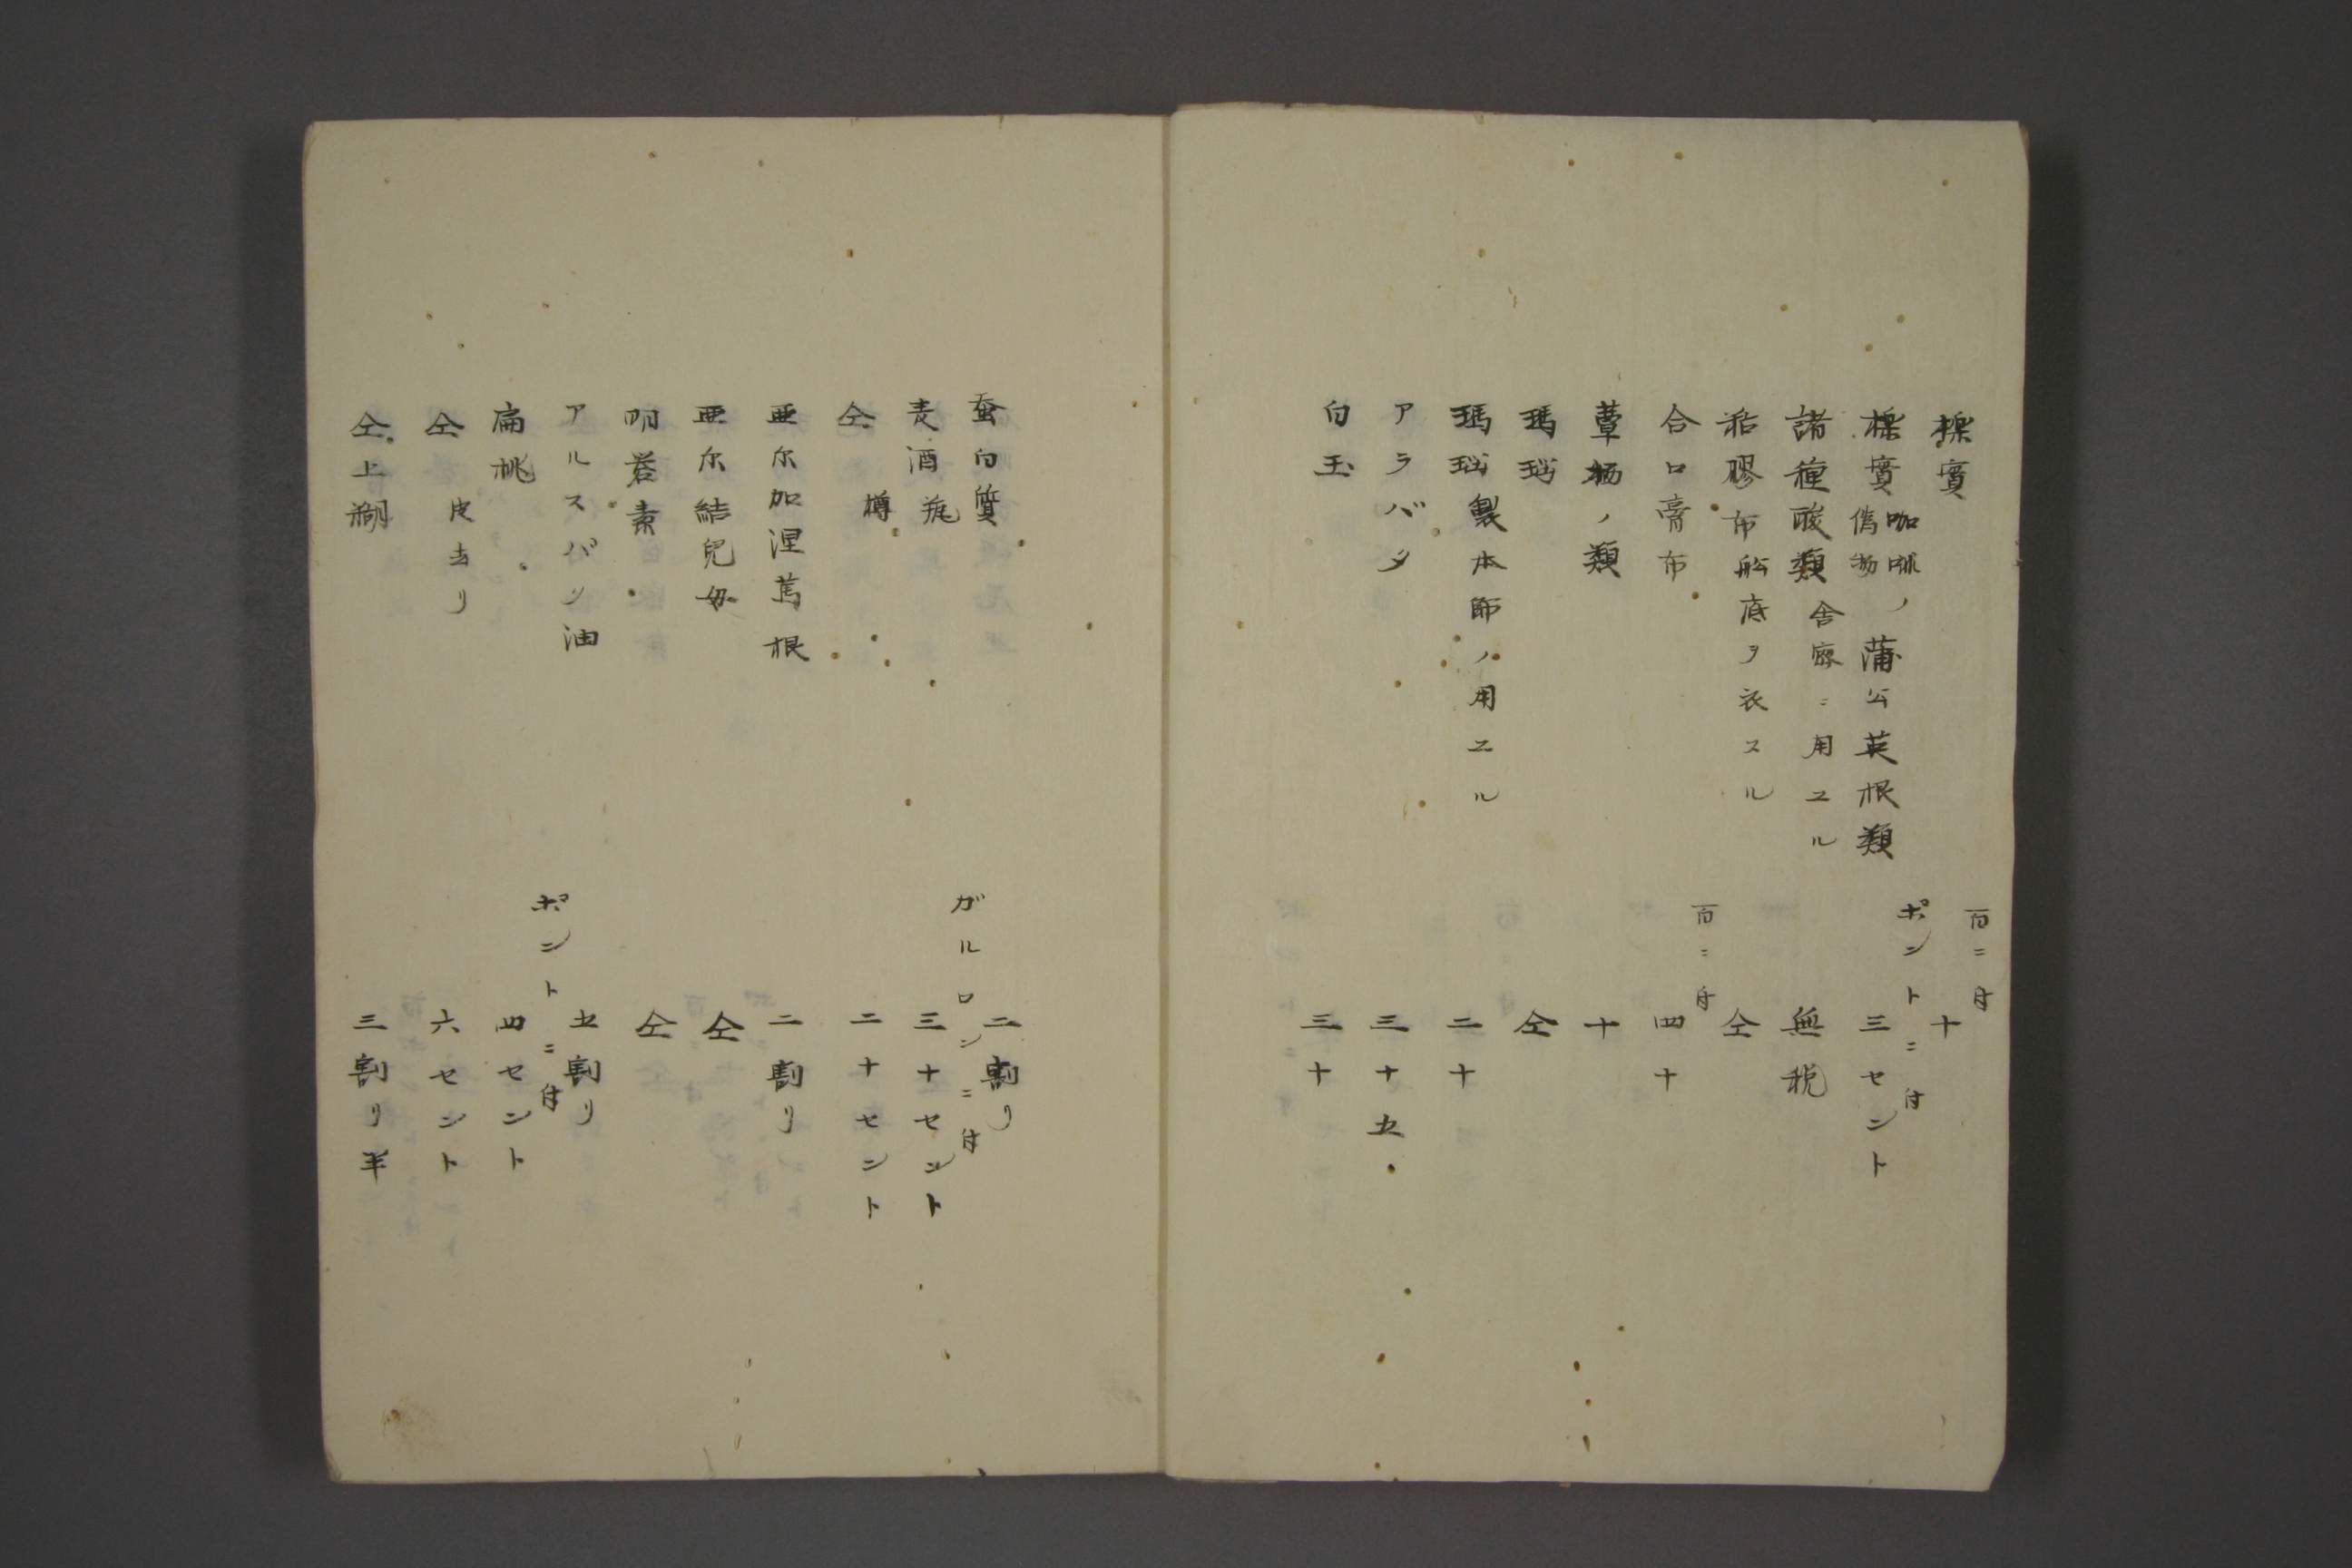 檪實 百ニ付 十
檪實 咖啡ノ偽物 蒲公英根類 ポントニ付 三セント
諸種酸類 舎密ニ用ユル 無税
粘膠布 舩底ヲ衣スル 仝
合口膏布 百ニ付 四十
蕈栖ノ類 十
瑪瑙 仝
瑪瑙 製本師ノ用エル 二十
アラバタ 三十五
白玉 三十
蚕白質 二割リ
麦酒 瓶 ガルロンニ付 三十セント
仝 樽 二十セント
亜尓加涅蔦根 二割リ
亜尓結兒母 仝
明礬素 仝
アルスバン油 五割リ
扁桃 ポントニ付 四セント
仝 皮去リ 六セント
仝上糊 三割リ半